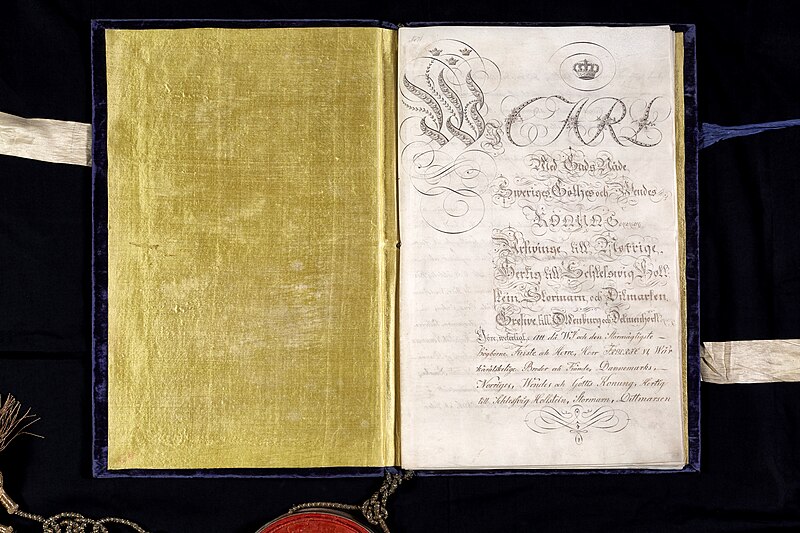 Wi CARL
Med Guds Nåde
Sweriges, Göthes och Wendes
KONUNG
Arfwinge till Norrige,
Hertig till Schleswig Holl
stein, Stormarn och Ditmarken,
Grefwe till Oldenburg och Delmenhorst
Göre witterligt, att wi Wi och den Stormägtigste
högborne Furste och Herre, Herr FREDRIC VI Wår
käraelskelige Broder och Frände, Dannemarks,
Norriges, Wendes och Göttes Konung, Hertig
till Schleswig Hollstein, Stormarn, Dittmarsen